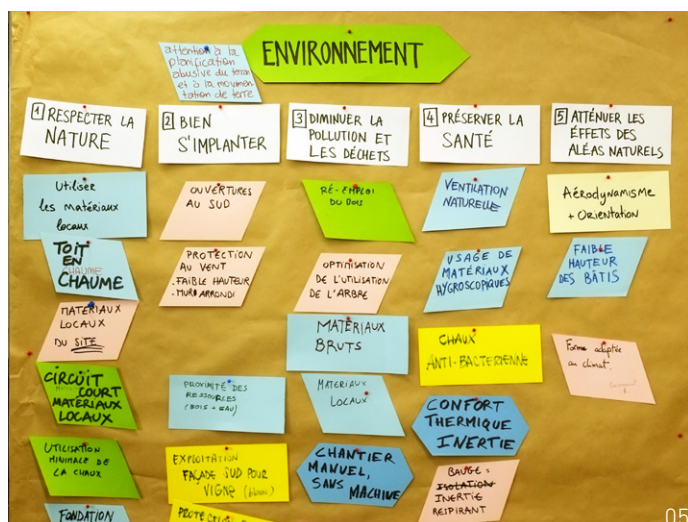 ENVIRONNEMENT
attention à la
planification
abusive du terrain
et à la mouvemen
tation de terre
1 RESPECTER LA
NATURE
Utiliser
les matériaux
locaux
TOIT
EN
CHAUME
CHAUME
MATERIAUX
LOCAUX
DU SITE
CIRCUIT
COURT
MATERIAUX
LOCAUX
UTILISATION
MINIMALE DE
LA CHAUX
FONDATION
2 BIEN
S'IMPLANTER
OUVERTURES
AU SUD
PROTECTION
AU VENT
. FAIBLE HAUTEUR
. MURS ARRONDI
PROXIMITÉ DES
RESSOURCES
(BOIS - EAU)
EXPLOITATION
FAÇADE SUD POUR
VIGNE
3 DIMINUER LA
POLLUTION ET
LES DÉCHETS
RÉ-EMPLOI
DU BOIS
OPTIMISATION
DE L'UTILISATION
DE L'ARBRE
MATÉRIAUX
BRUTS
MATERIAUX
LOCAUX
CHANTIER
MANUEL,
SANS MACHINE
4 PRÉSERVER LA
SANTÉ
VENTILATION
NATURELLE
USAGE DE
MATÉRIAUX
HYGROSCOPIQUES
CHAUX
ANTI-BACTERIENNE
CONFORT
THERMIQUE
INERTIE
BAUGE =
ISOLATION
INERTIE
RESPIRANT
5 ATTÉNUER LES
ÉFFETS DES
ALÉAS NATURELS
AÉRODYNAMISME
+ ORIENTATION
FAIBLE
HAUTEUR
DES BÂTIS
Forme adaptée
au climat.
05